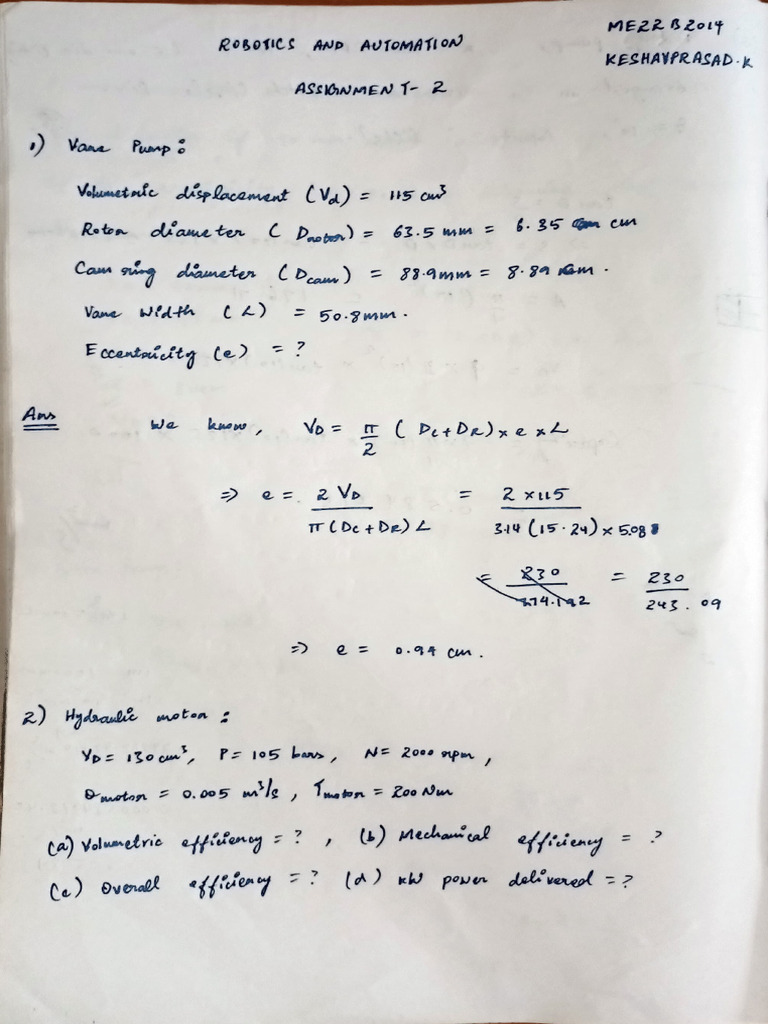 ME22B2014
ROBOTICS AND AUTOMATION
KESHAVPRASAD.K
ASSIGNMENT- 2
1) Vane Pump:
Volumetric displacement (Vd) = 115 cm³
Rotor diameter ( Drotor) = 63.5 mm = 6.35 cm
Cam ring diameter (Dcam) = 88.9mm = 8.89 cm.
Vane Width (L) = 50.8mm.
Eccentricity (e) = ?
Ans We know, VD = π/2 ( Dc + DR) × e × L
⇒ e = 2 VD / π (Dc + DR) L = 2 × 115 / 3.14 (15.24) × 5.08
= 230 / = 230 / 243.09
⇒ e = 0.94 cm.
2) Hydraulic motor :
VD = 130 cm³, P = 105 bars, N = 2000 rpm,
Qmotor = 0.005 m³/s, Tmotor = 200 Nm
(a) Volumetric efficiency = ? , (b) Mechanical efficiency = ?
(c) Overall efficiency = ? (d) kW power delivered = ?